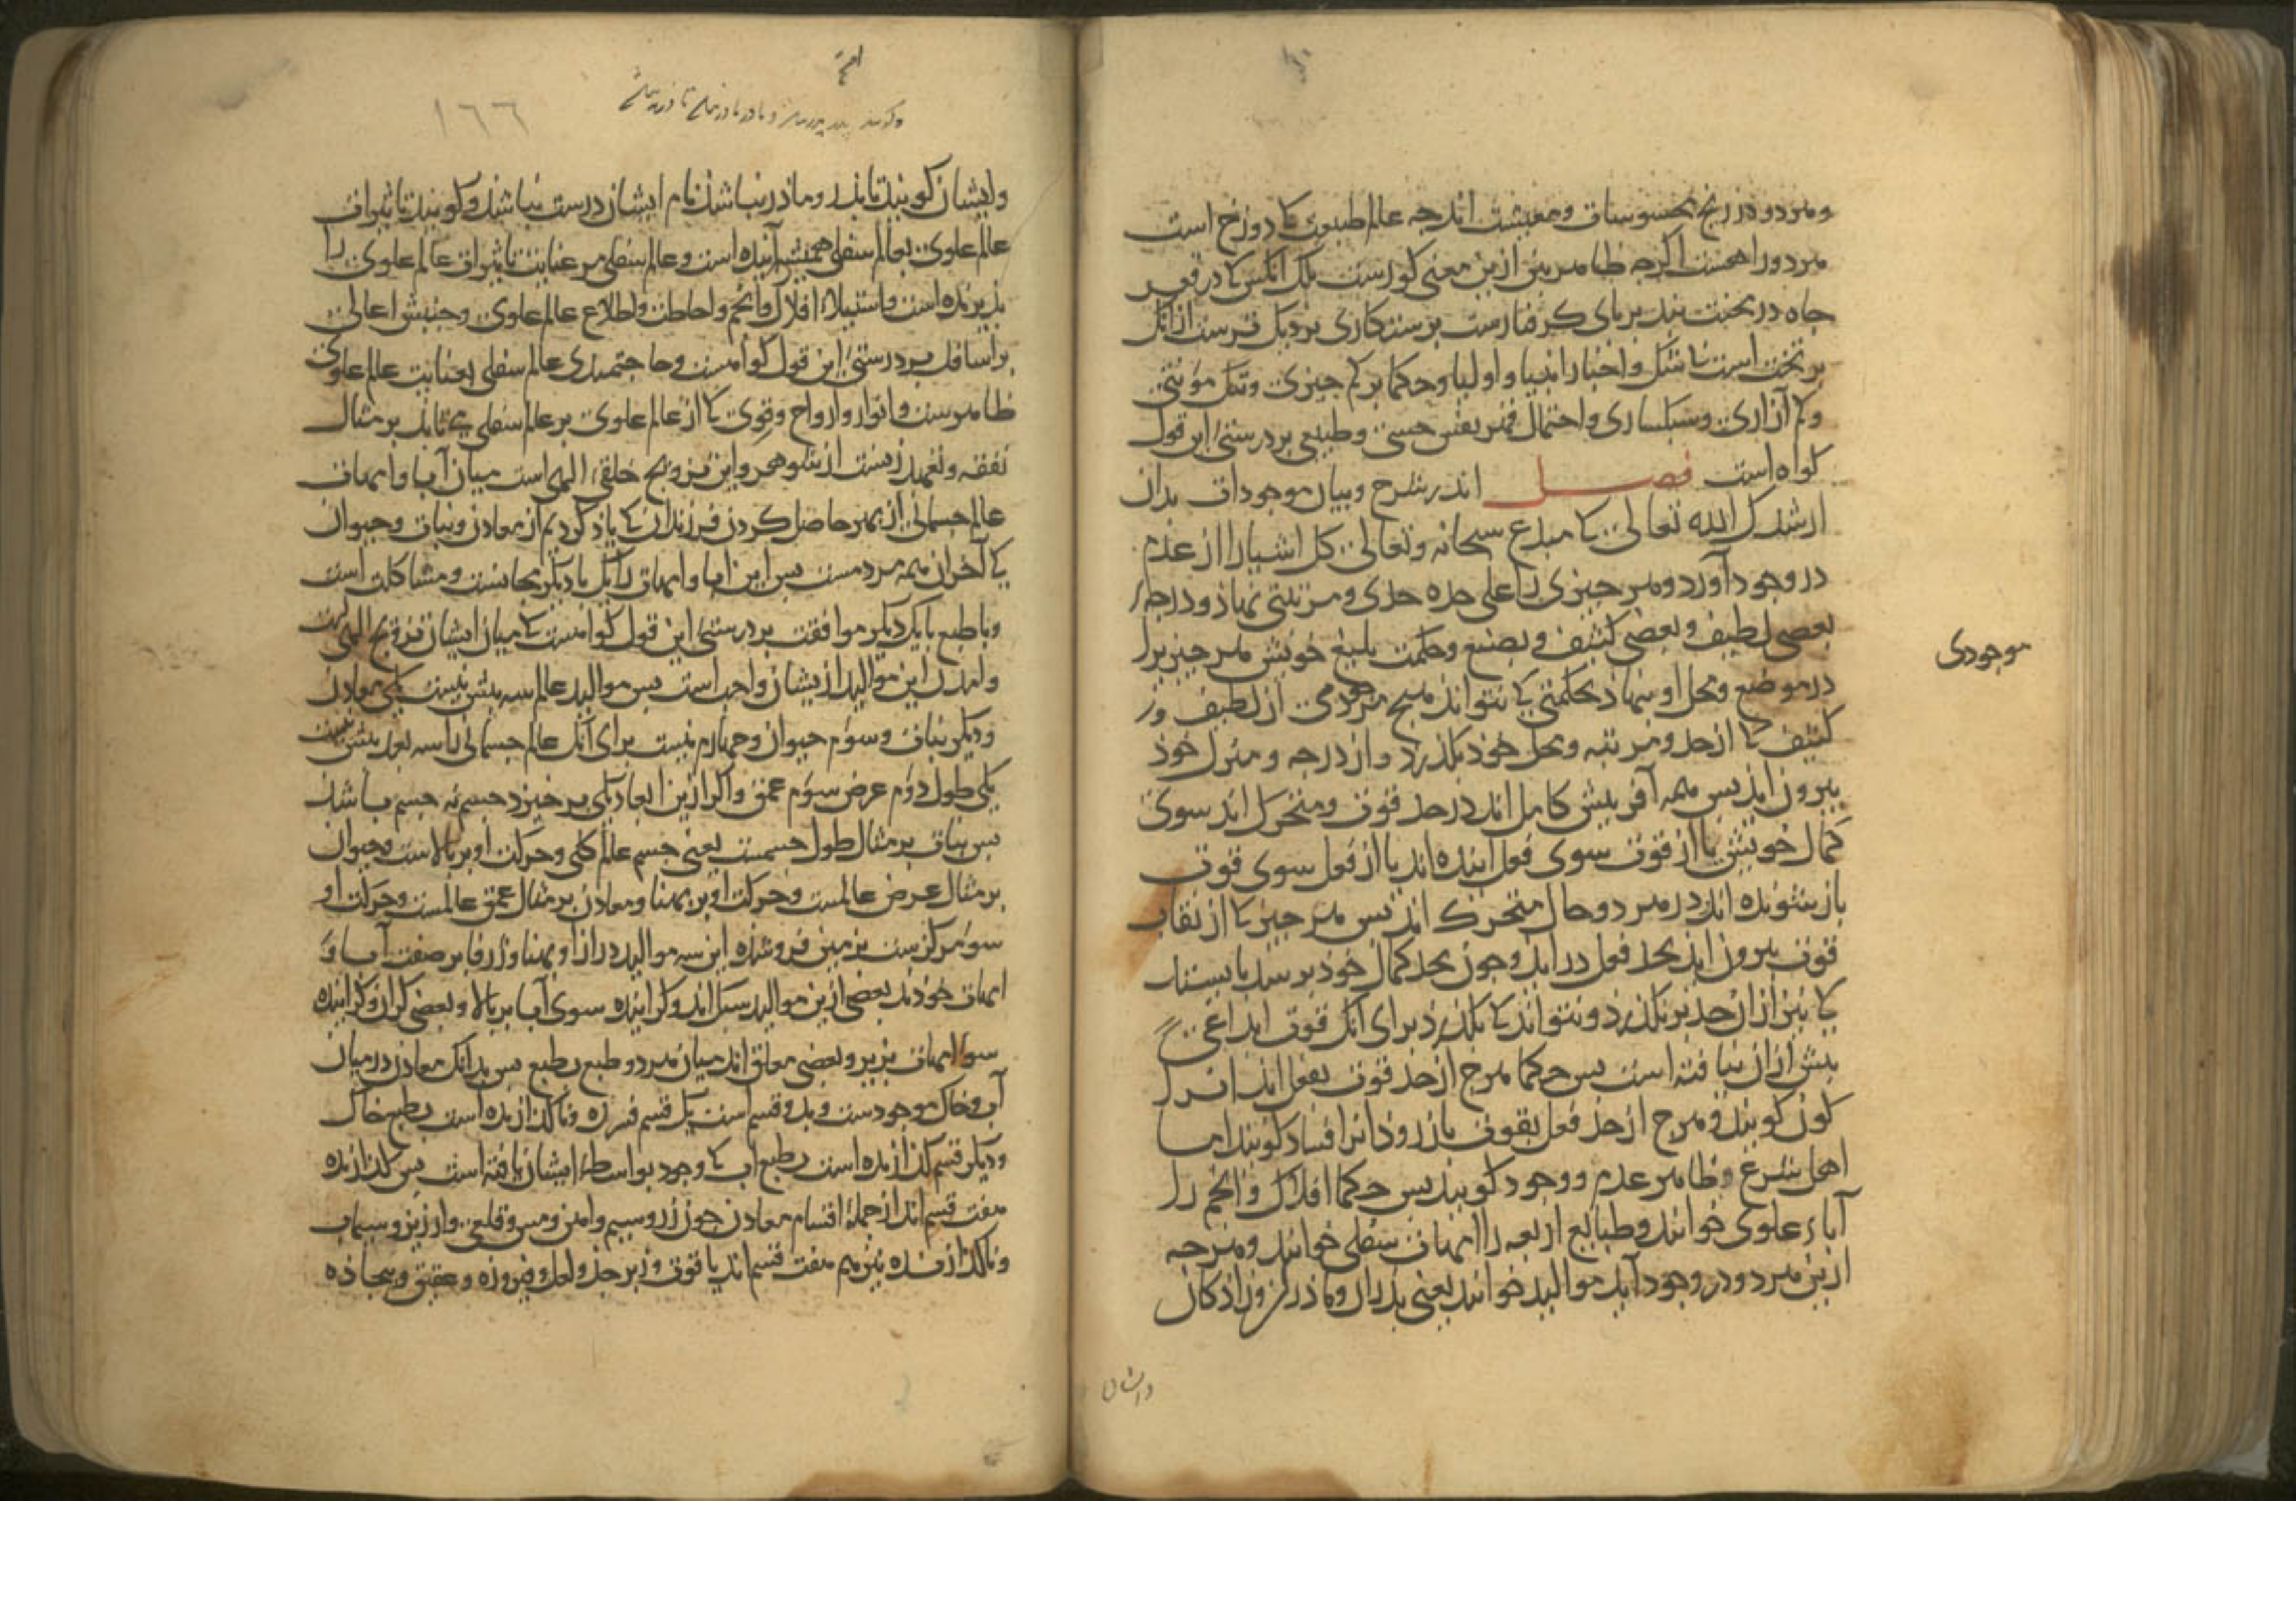 و هر دو در رنج محسوسات و معیشت اند چه عالم طبیعت کا دوزخ است
هر دو را هست اگرچه ظاهر بین ازین معنی کورست بلک آنکس کا در قعر
چاه در سخت بند بر پای گرفتارست برستکاری نزدیک ترست از آنک
بر تخت است ناشکل و اخبار انبیا و اولیا و حکما بر کم چیزی و تنگ مؤنتی
و کم آزاری و سبکساری و احتمال قهر نفس حسی و طبیعی بر درستی این قول
کواه است فصل اندر شرح و بیان موجودات بدان
ارشدک الله تعالی کا مبدع سبحانه و تعالی کل اشیا را از عدم
در وجود آورد و هر چیزی را علی حده حدی و مرتبتی نهاد و درجه
بعضی لطیف و بعضی کثیف و بصنع و حکمت بلیغ خویش هر چیز را
موجودی
در موضع و محل او بنهاد بحکمتی کا نتواند هیچ از لطیف و ز
کثیف کا از حد و مرتبه و محل خود بگذرد و از درجه و منزل خود
بیرون اید پس همه آفرینش کامل اند در حد قوت و متحرک اند سوی
کمال خویش یا از قوت سوی فعل آینده اند یا از فعل سوی قوت
باز شونده اند در هر دو حال متحرک اند پس هر چیز کا از نقاب
قوت بیرون اید بحد فعل در اید و چون بحد کمال خود برسد بایستد
کا نیز از آن حد بر نگذرد و نتواند کا بگذرد برای آنک قوت ابداعی
بیش از آن نیافته است پس حکما هرچ از حد قوت بفعل اید انرا
کون کویند و هرچ از حد فعل بقوت باز رود انرا فساد کویند اما
اهل شرع و ظاهر عدم و وجود کویند پس حکما افلاک و انجم را
آباء علوی خوانند و طبایع اربعه را امهات سفلی خوانند و هرچه
ازین هر دو در وجود آید موالید خوانند یعنی پدران و مادران و زادکان
وایشان
وایشان کویند تا پدر و مادر نباشد نام ایشان درست نباشد و کویند تاثیرات
عالم علوی بعالم سفلی همیشه آینده است و عالم سفلی مر عنایت تاثیرات عالم علوی را
پذیرنده است و استیلاء افلاک و انجم و احاطت و اطلاع عالم علوی و جنبش اعالی
بر اسافل بر درستی این قول کواهست و حاجتمندی عالم سفلی بعنایت عالم علوی
ظاهرست و انوار و ارواح و قوی کا از عالم علوی بر عالم سفلی می تابد بر مثال
نفقه و تعهد زنست از شوهر و این تزویج خلقی الهی است میان آبا و امهات
عالم جسمانی از بهر حاصل کردن فرزندان کا یاد کردیم از معادن و نبات و حیوان
کا آخر آن همه مردمست پس این ابا و امهات را یک با دیگر مجانست و مشاکلت است
و با طبع یا یکدیگر موافقت بر درستی این قول کواهست کا میان ایشان تزویج الهی است
و امدن این موالید ازیشان واجب است پس موالید عالم سه بیش نیست یکی معادن
و دیگر نبات و سوم حیوان و چهارم نیست برای آنک عالم جسمانی را سه بعد بیش نیست
یکی طول دوم عرض سوم عمق و اکر ازین ابعاد یکی بر خیزد جسم نه جسم باشد
پس نبات بر مثال طول جسمست یعنی جسم عالم کلی و حرکت او بر بالاست و حیوان
بر مثال عرض عالمست و حرکت او بر پهنا و معادن بر مثال عمق عالمست و حرکت او
سوء مرکزست بزمین فروشده این سه موالید دراز او پهنا و ژرفا بر صفت آبا و
امهات خودند بعضی ازین موالید سبک اند و کراینده سوی آبا بر بالا و بعضی کران و کراینده
سو امهات بزیر و بعضی معلق اند میان هر دو طبع بطبع پس بدانک معادن در میان
آب و خاک موجودست و بدو قسم است یک قسم فسرده و ناکدازنده است بطبع خاک
و دیگر قسم کدازنده است بطبع آب کا وجود بواسطه ایشان یافته است پس کدازنده
هفت قسم اند از جمله اقسام معادن چون زر و سیم و آهن و مس و قلعی و ارزیز و سیماب
و ناکدازنده نیز هم هفت قسم اند یاقوت و زبرجد و لعل و فیروزه و عقیق و بیجاده
١٦٦